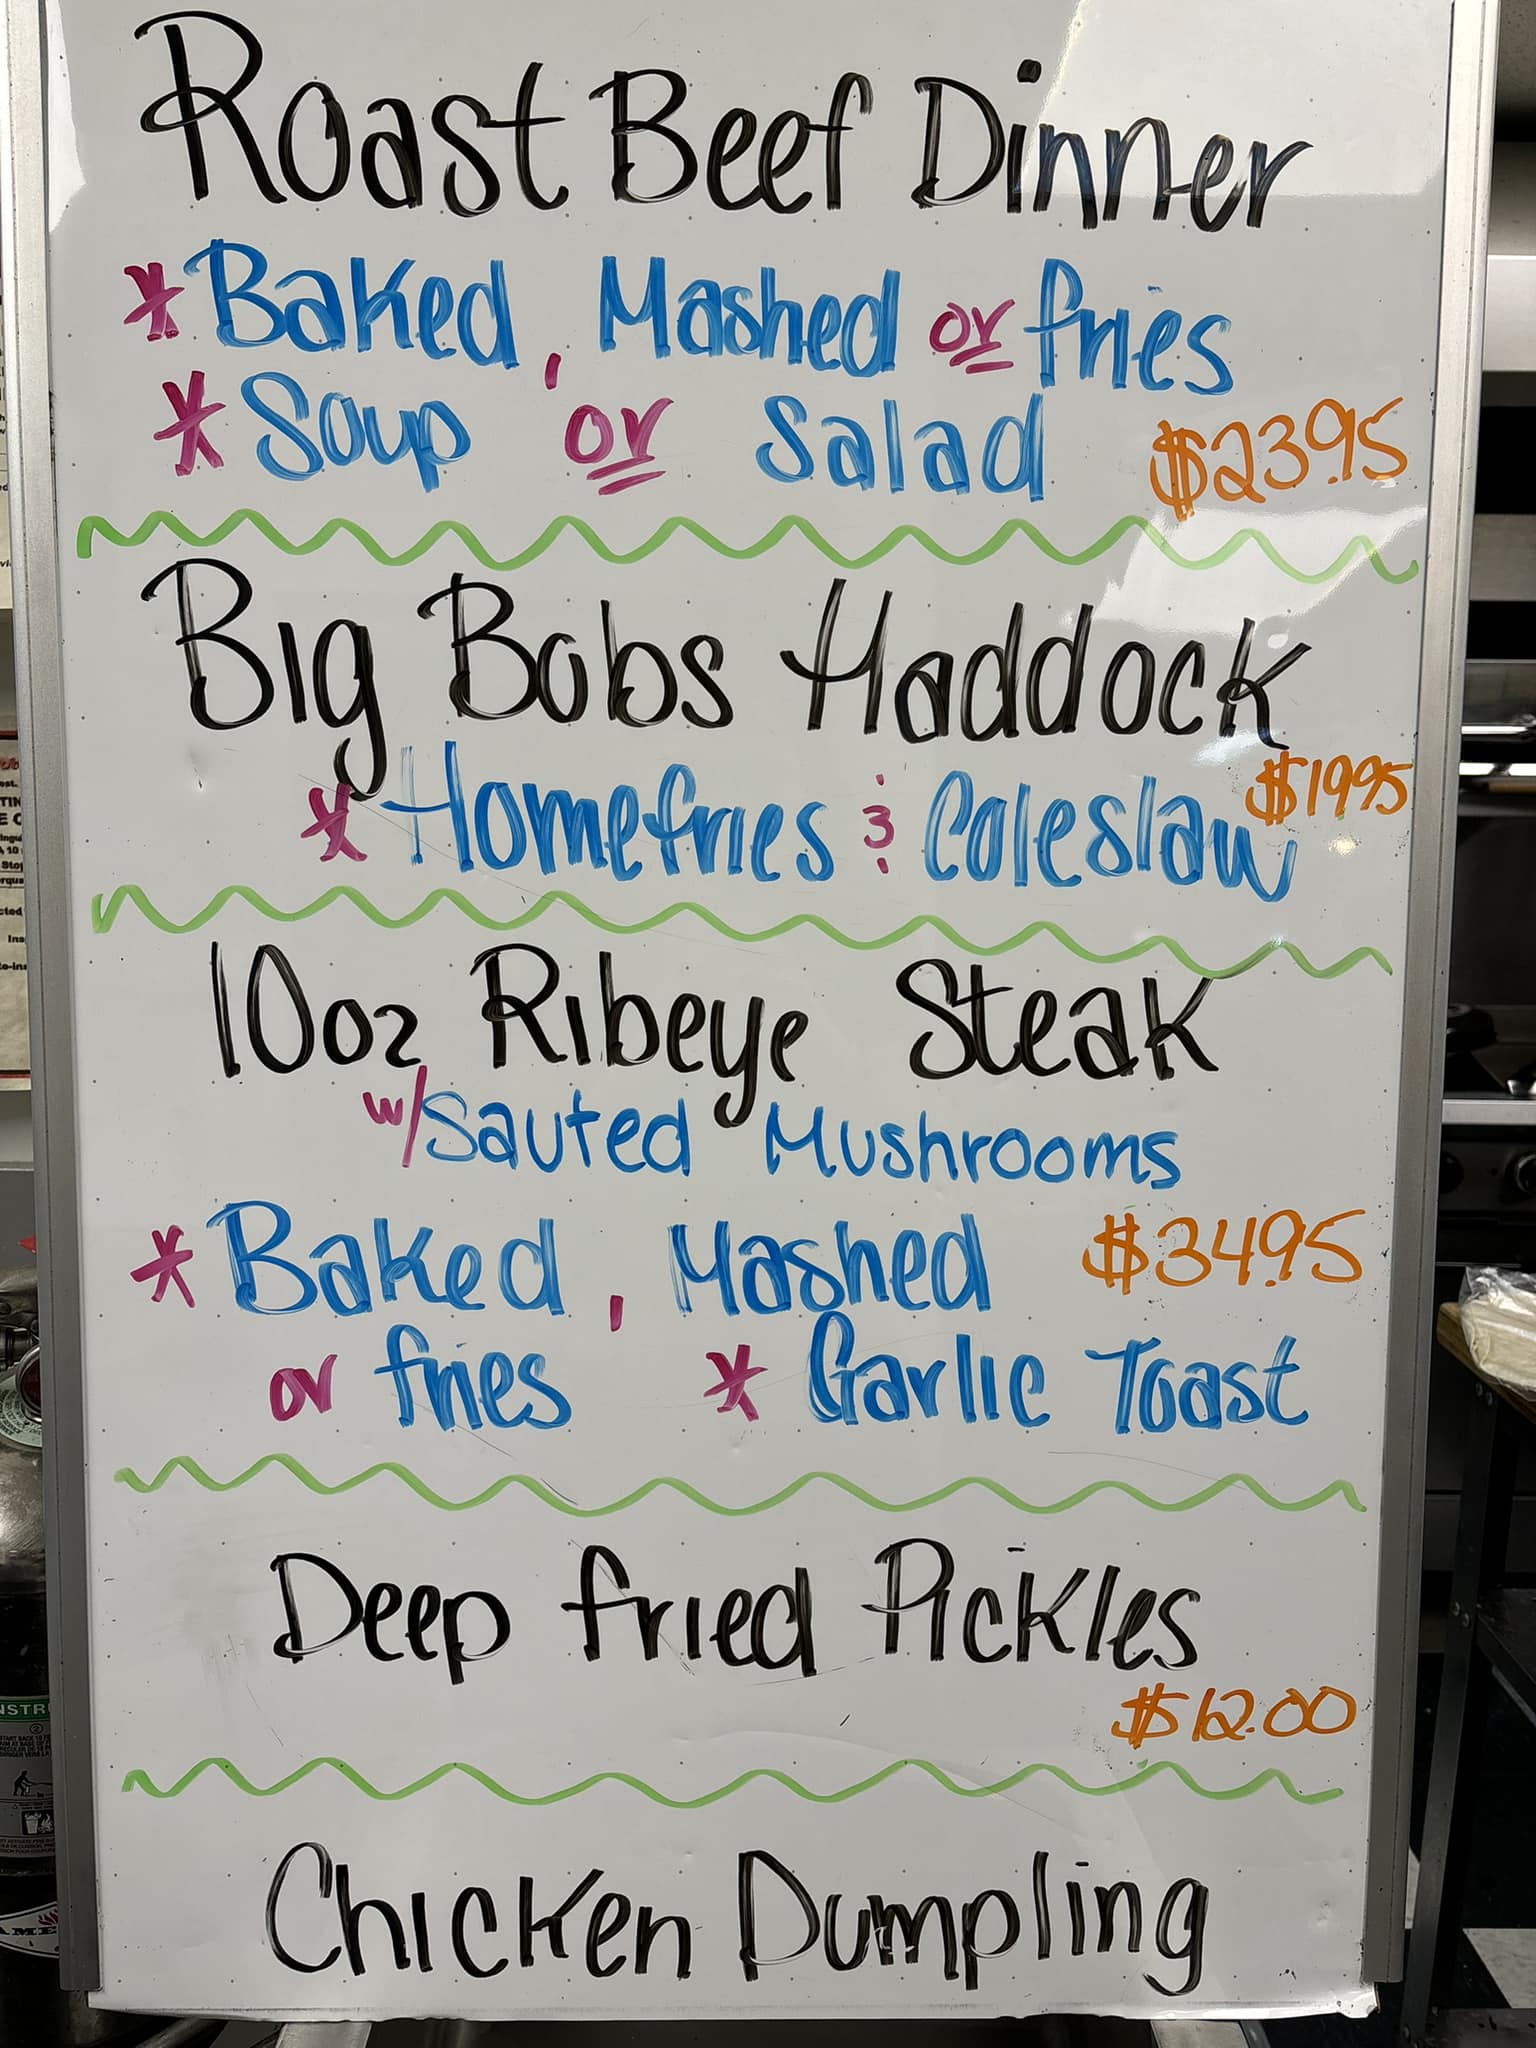 Roast Beef Dinner
* Baked, Mashed or fries
* Soup or Salad $23.95
Big Bobs Haddock
$19.95
* Homefries & Coleslaw
10oz Ribeye Steak
w/ Sauted Mushrooms
* Baked, Mashed $34.95
or fries * Garlic Toast
Deep fried Pickles
$12.00
Chicken Dumpling